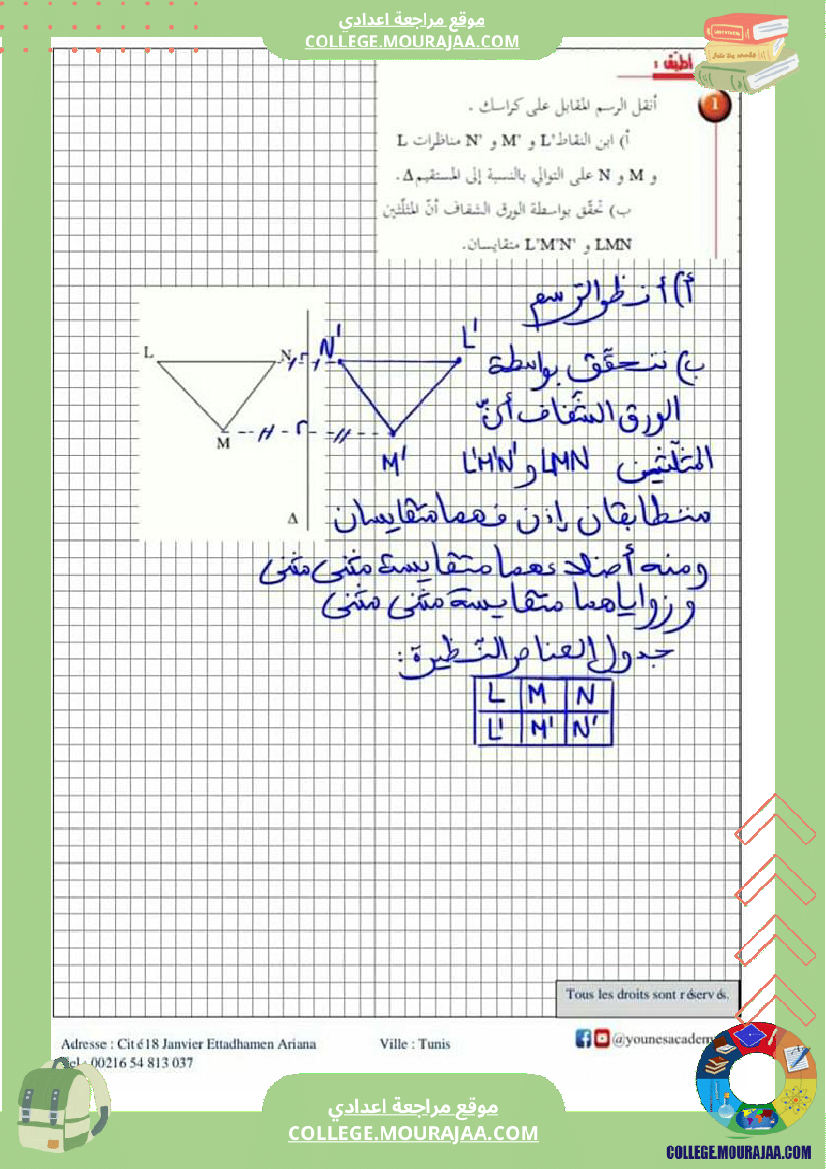 موقع مراجعة اعدادي
COLLEGE.MOURAJAA.COM
أطبّق :
1
أنقل الرسم المقابل على كراسك .
أ) ابن النقاط L' و M' و N' مناظرات L
و M و N على التوالي بالنسبة إلى المستقيم Δ.
ب) تحقّق بواسطة الورق الشفاف أنّ المثلثين
LMN و L'M'N' متقايسان.
أ) أنظر الرسم
L N N' L'
M M'
Δ
ب) نتحقّق بواسطة
الورق الشفاف أنّ
المثلّثين LMN و L'M'N'
متطابقان إذن فهما متقايسان
ومنه أضلاعهما متقايسة مثنى مثنى
وزواياهما متقايسة مثنى مثنى
جدول العناصر النّظيرة :
L M N
L' M' N'
Tous les droits sont réservés.
Adresse : Cité 18 Janvier Ettadhamen Ariana Ville : Tunis @younesacadem
Tel : 00216 54 813 037
موقع مراجعة اعدادي
COLLEGE.MOURAJAA.COM
COLLEGE.MOURAJAA.COM